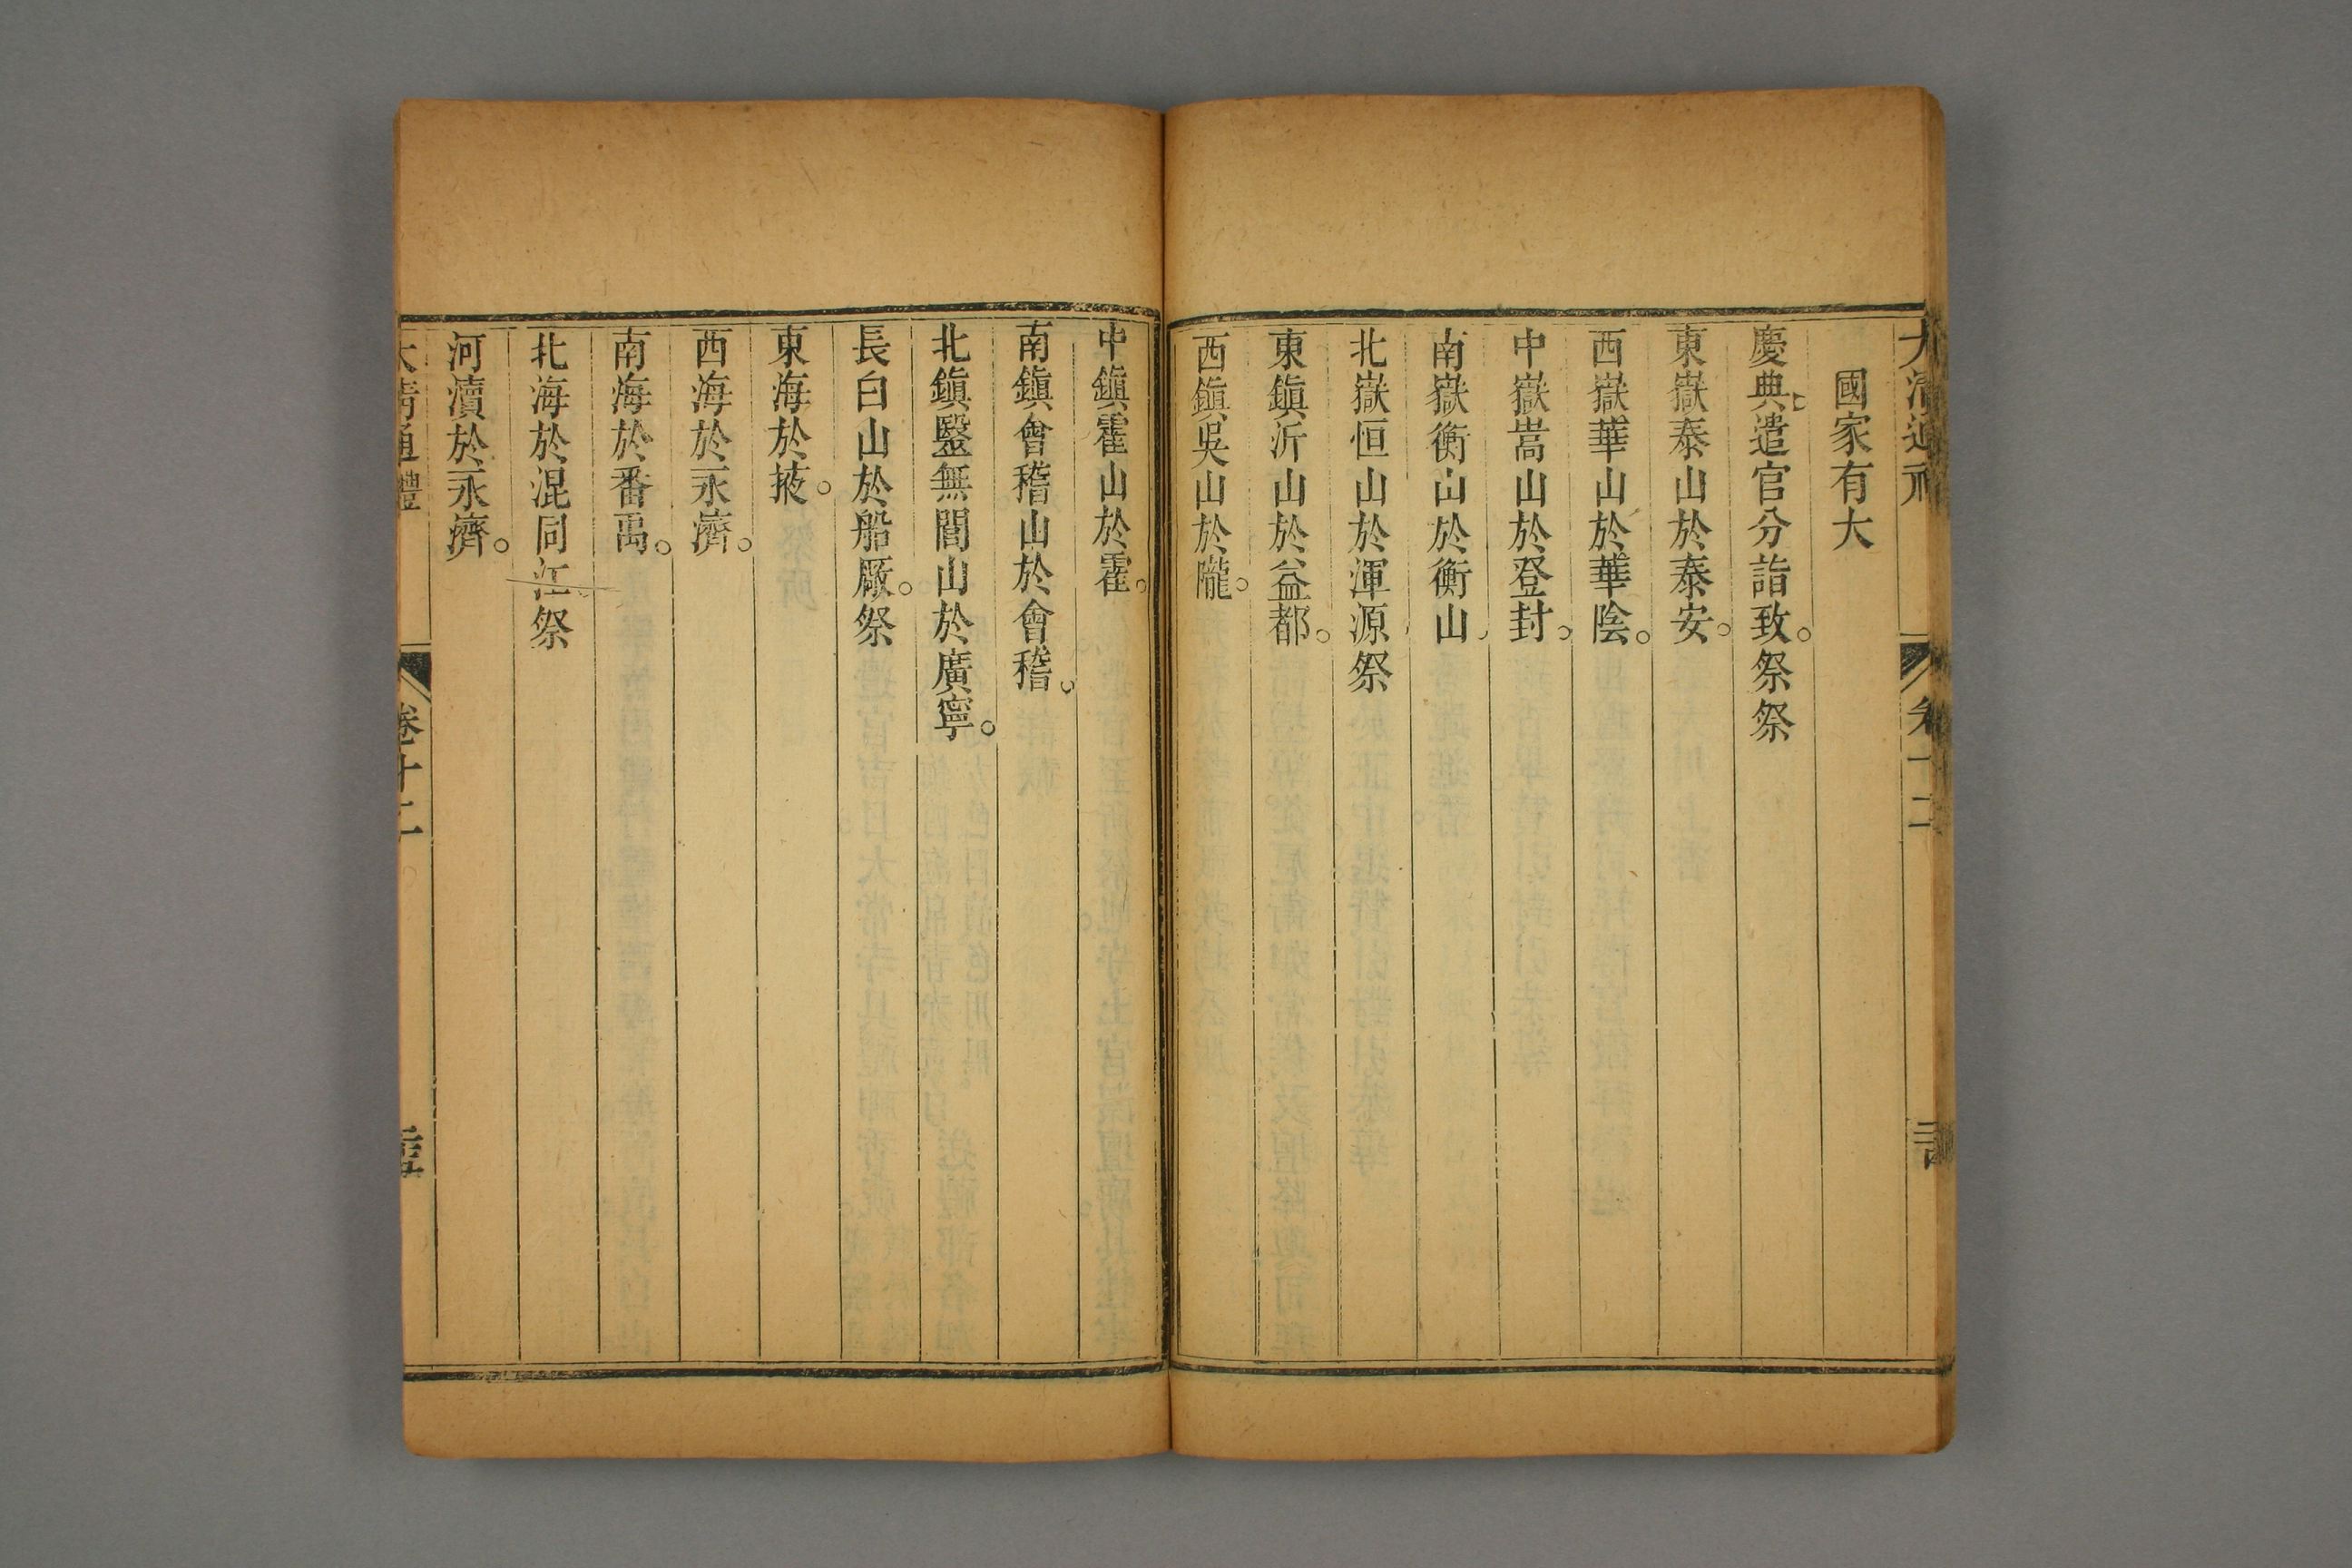 國家有大
慶典遣官分詣致。祭祭
東嶽泰山於泰安。
西嶽華山於華陰。
中嶽嵩山於登封。
南嶽衡山於衡山
北嶽恒山於渾源祭
東鎮沂山於益都。
西鎮吳山於隴。
中鎮霍山於霍。
南鎮會稽山於會稽。
北鎮毉無閭山於廣寧。
長白山於船厰。祭
東海於掖。
西海於永濟。
南海於番禹。
北海於混同江祭
河瀆於永濟。
大清通禮
卷十二